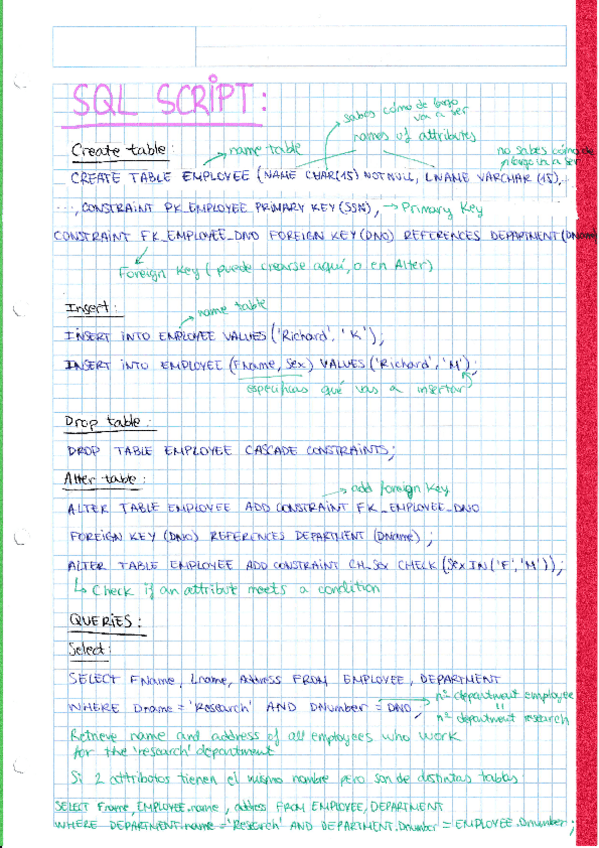 SQL SCRIPT:
sabes cómo de largo
va a ser
names of attributes
Create table:
name table
no sabes cómo de
largo va a ser
CREATE TABLE EMPLOYEE (NAME CHAR(15) NOT NULL, LNAME VARCHAR (15),...
..., CONSTRAINT PK_EMPLOYEE PRIMARY KEY (SSN), → Primary Key
CONSTRAINT FK_EMPLOYEE_DNO FOREIGN KEY (DNO) REFERENCES DEPARTMENT (
Foreign Key (puede crearse aquí, o en Alter)
Insert:
name table
INSERT INTO EMPLOYEE VALUES ('Richard', 'K');
INSERT INTO EMPLOYEE (Fname, Sex) VALUES ('Richard', 'M');
especificas qué vas a insertar
Drop table:
DROP TABLE EMPLOYEE CASCADE CONSTRAINTS;
Alter table:
add foreign key
ALTER TABLE EMPLOYEE ADD CONSTRAINT FK_EMPLOYEE_DNO
FOREIGN KEY (DNO) REFERENCES DEPARTMENT (DName);
ALTER TABLE EMPLOYEE ADD CONSTRAINT CH_Sex CHECK (Sex IN ('F', 'M'));
↳ Check if an attribut meets a condition
QUERIES:
Select:
SELECT FName, Lname, Address FROM EMPLOYEE, DEPARTMENT
nº department employee
WHERE Dname = 'Research' AND DNumber = DNO;
nº department research
Retrieve name and address of all employees who work
for the 'research' department
Si 2 attributos tienen el mismo nombre pero son de distintas tablas:
SELECT Fname, EMPLOYEE.name, address FROM EMPLOYEE, DEPARTMENT
WHERE DEPARTMENT.name = 'Research' AND DEPARTMENT.Dnumber = EMPLOYEE.Dnumber;